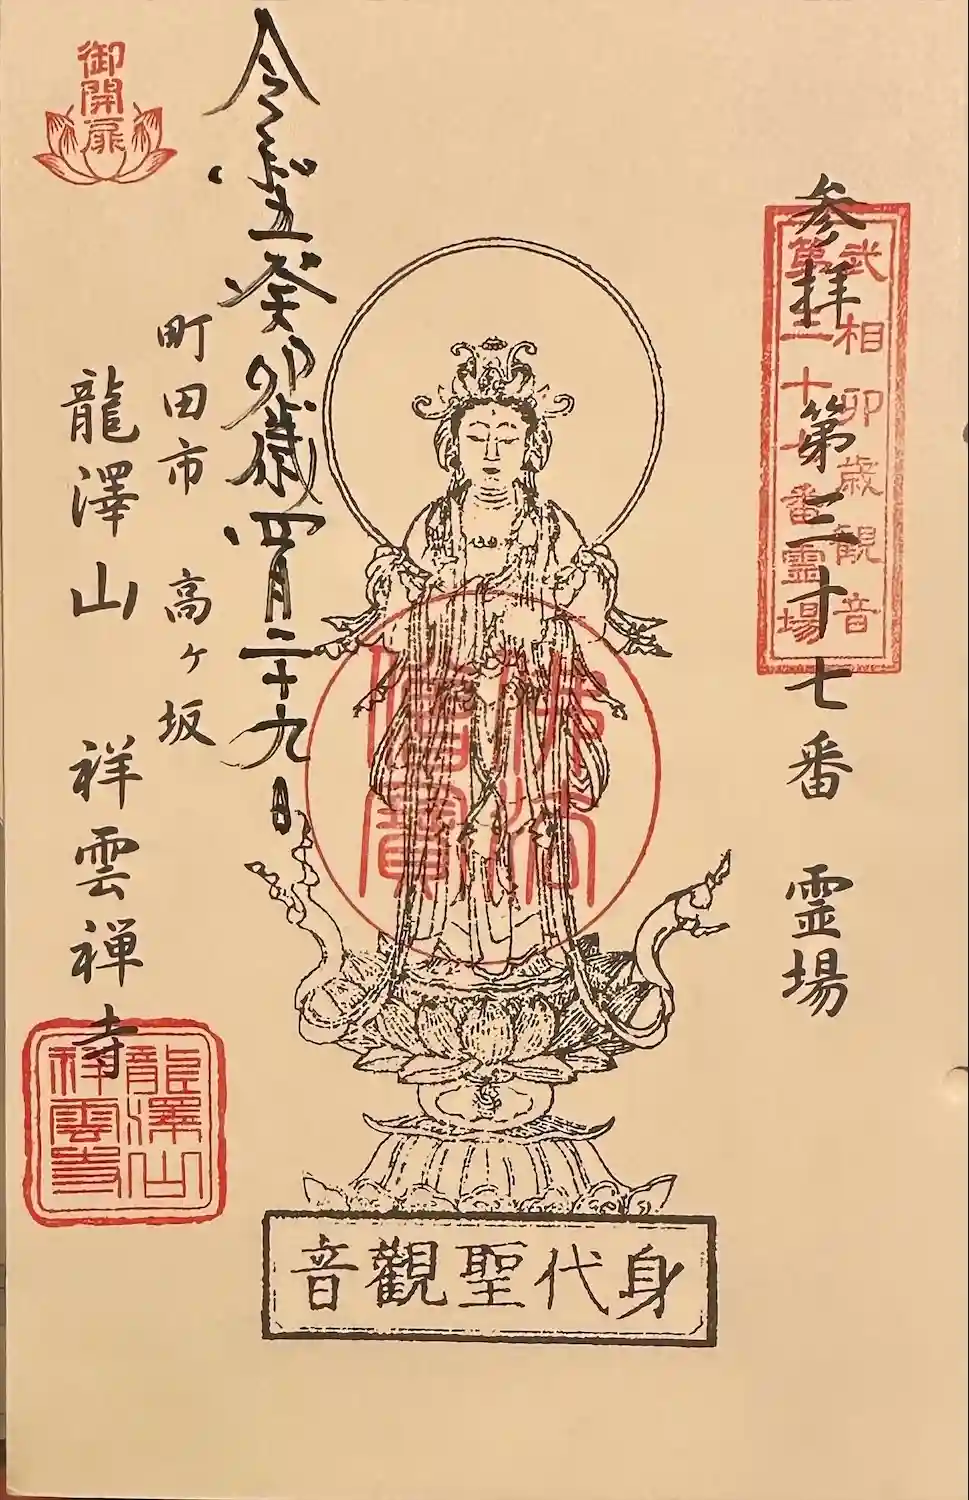 参拝 第三十七番 霊場
武相卯歳観音
第三十七番霊場
佛法
僧寶
身代聖觀音
令和五癸卯歳四月二十九日
町田市 高ヶ坂
龍澤山 祥雲禅寺
御開扉
龍澤山
祥雲寺